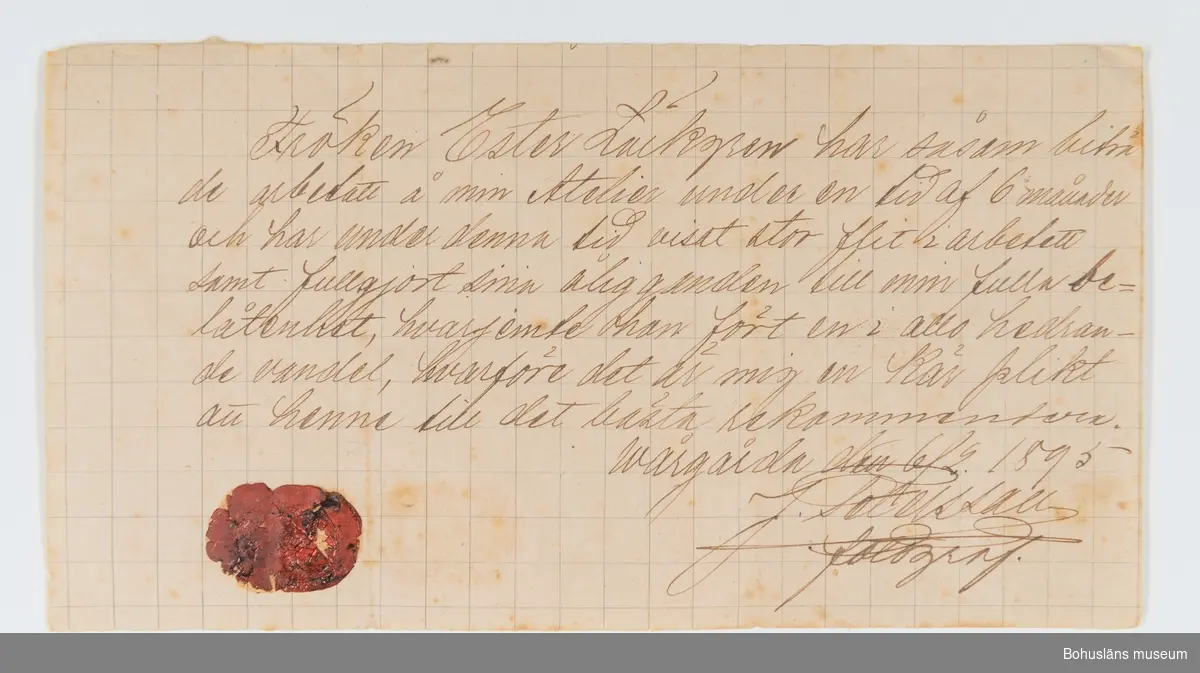 Fröken Ester Läckgren har såsom biträ
de arbetatt å min Atelier under en tid af 6 månader
och har under denna tid visat stor flit i arbetett
samt fullgjort sina åligganden till min fulla be=
låtenhet, hvarjemte hon fört en i allo hedran-
de vandel, hvarföre det är mig en kär plikt
att henne till det bästa rekommendera.
Wårgårda den 6/9. 1895
J.
fotograf.
Bohusläns museum